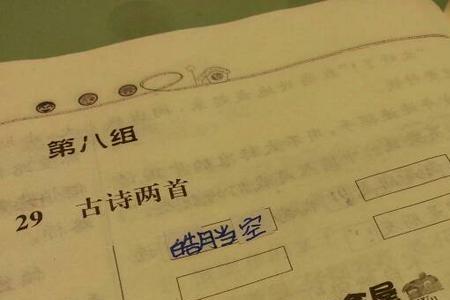 第八组
29 古诗两首
皓月当空
屋